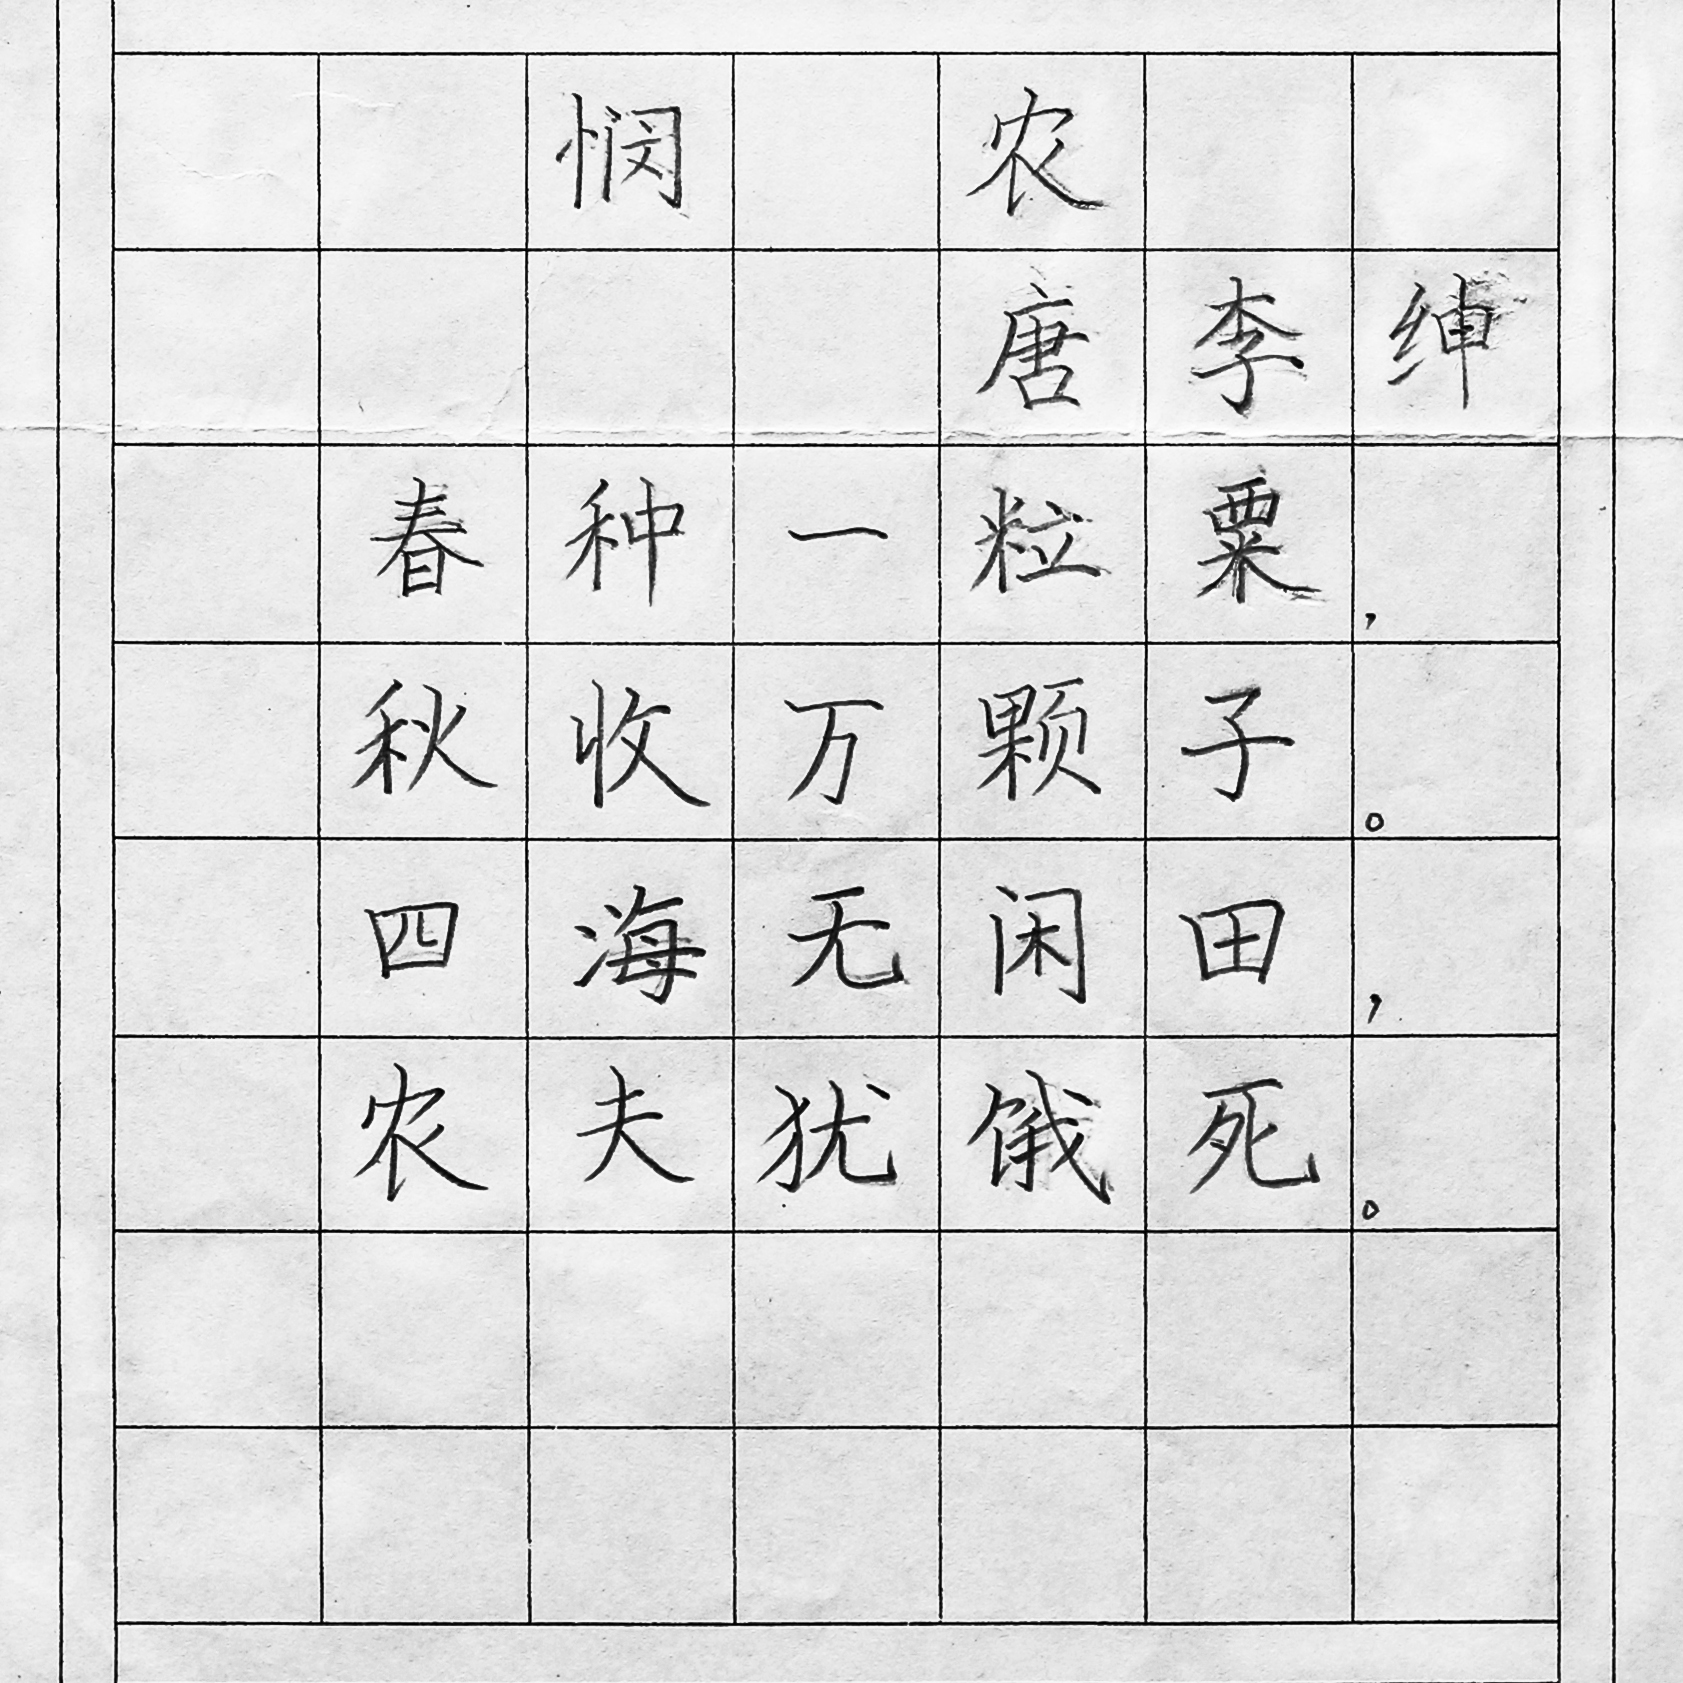 悯农
唐李绅
春种一粒粟，
秋收万颗子。
四海无闲田，
农夫犹饿死。